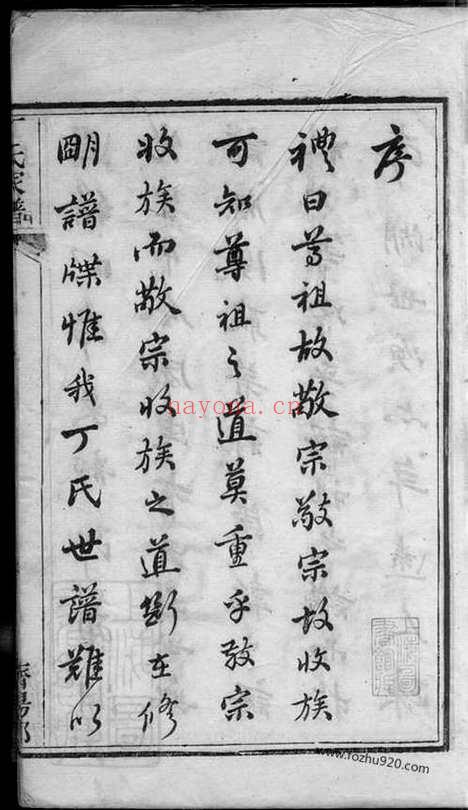 序
禮曰尊祖故敬宗敬宗故收族
可知尊祖之道莫重乎敬宗
收族而敬宗收族之道斷在修
明譜牒惟我丁氏世譜難以
丁氏家譜
濟陽郡
nayona.cn
www.fozhu920.com